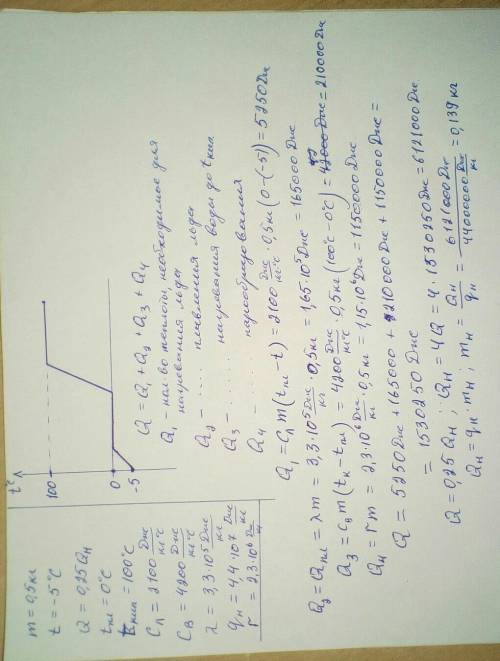 m = 0,5 кг
t = -5°C
Q = 0,25 Qн
tпл = 0°C
tкип = 100°C
Cл = 2100 Дж/кг°C
Cв = 4200 Дж/кг°C
λ = 3,3·10⁵ Дж/кг
qн = 4,4·10⁷ Дж/кг
r = 2,3·10⁶ Дж/кг
t°C
100
0
-5
Q = Q₁ + Q₂ + Q₃ + Q₄
Q₁ - кол-во теплоты, необходимое для
нагревания льда
Q₂ - ..... плавления льда
Q₃ - ...... нагревания воды до tкип
Q₄ - парообразования
Q₁ = Cл m (tпл - t) = 2100 Дж/кг°C · 0,5 кг (0-(-5)) = 5250 Дж
Q₂ = Qпл = λm = 3,3·10⁵ Дж/кг · 0,5 кг = 1,65·10⁵ Дж = 165000 Дж
Q₃ = Cв m (tк - tпл) = 4200 Дж/кг°C · 0,5 кг (100°C - 0°C) = 42000 Дж = 210000 Дж
Q₄ = rm = 2,3·10⁶ Дж/кг · 0,5 кг = 1,15·10⁶ Дж = 1150000 Дж
Q = 5250 Дж + 165000 + 210000 Дж + 1150000 Дж =
= 1530250 Дж
Q = 0,25 Qн ; Qн = 4Q = 4 · 1530250 Дж = 6121000 Дж
Qн = qн · mн ; mн = Qн/qн = 6121000 Дж / 44000000 Дж/кг = 0,139 кг